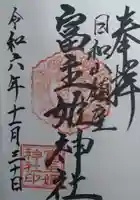 奉拝
日和山頂上
富主姫神社
令和六年十二月三十日